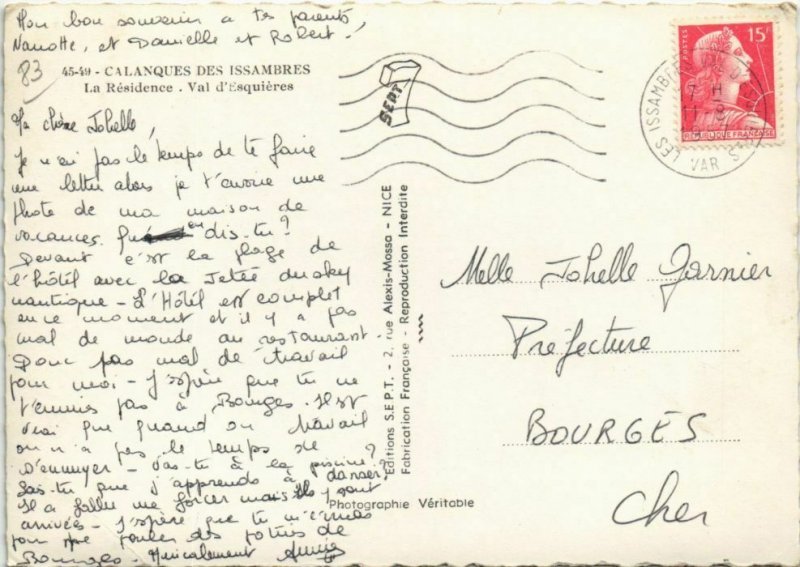 Mon bon souvenir à tes parents,
Nanette, et Danielle et Robert.
83
45-49 - CALANQUES DES ISSAMBRES
La Résidence . Val d'Esquières
Ma chère Johelle,
Je n'ai pas le temps de te faire
une lettre alors je t'envoie une
photo de ma maison de
vacances. Qu'en dis-tu?
Devant c'est la plage de
l'hôtel avec la Jetée du sky
nautique - L'Hôtel est complet
en ce moment et il y a pas
mal de monde au restaurant.
Donc pas mal de travail
pour moi - J'espère que tu ne
t'ennuies pas à Bourges. Il est
vrai que quand on travail
on n'a pas le temps de
s'ennuyer - Vas-tu à la piscine?
Sais-tu que j'apprends à danser?
Il a fallu me forcer mais ils y sont
arrivés - J'espère que tu m'écriras
pour me parler des potins de
Bourges - Amicalement
SEPT
Editions S.E.P.T. - 2, rue Alexis-Mossa - NICE
Fabrication Française - Reproduction Interdite
Photographie Véritable
POSTES
15F
REPUBLIQUE FRANÇAISE
LES ISSAMBRES
VAR
Melle Johelle Garnier
Préfecture
BOURGES
Cher